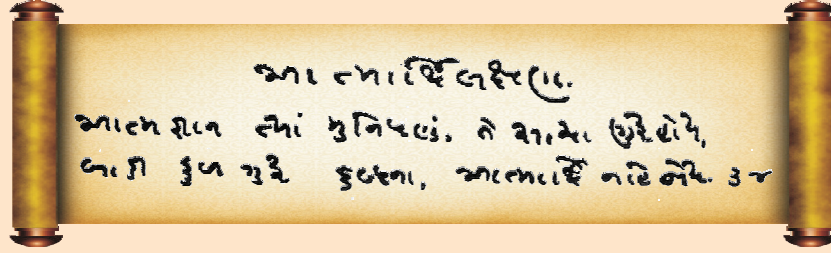 આત્માર્થિ લક્ષણ.
આત્મજ્ઞાન ત્યાં મુનિપણું, તે સાચા ગુરૂ હોય,
બાકી કુળ ગુરૂ કલ્પના, આત્માર્થિ નહિ જોય. ૩૪